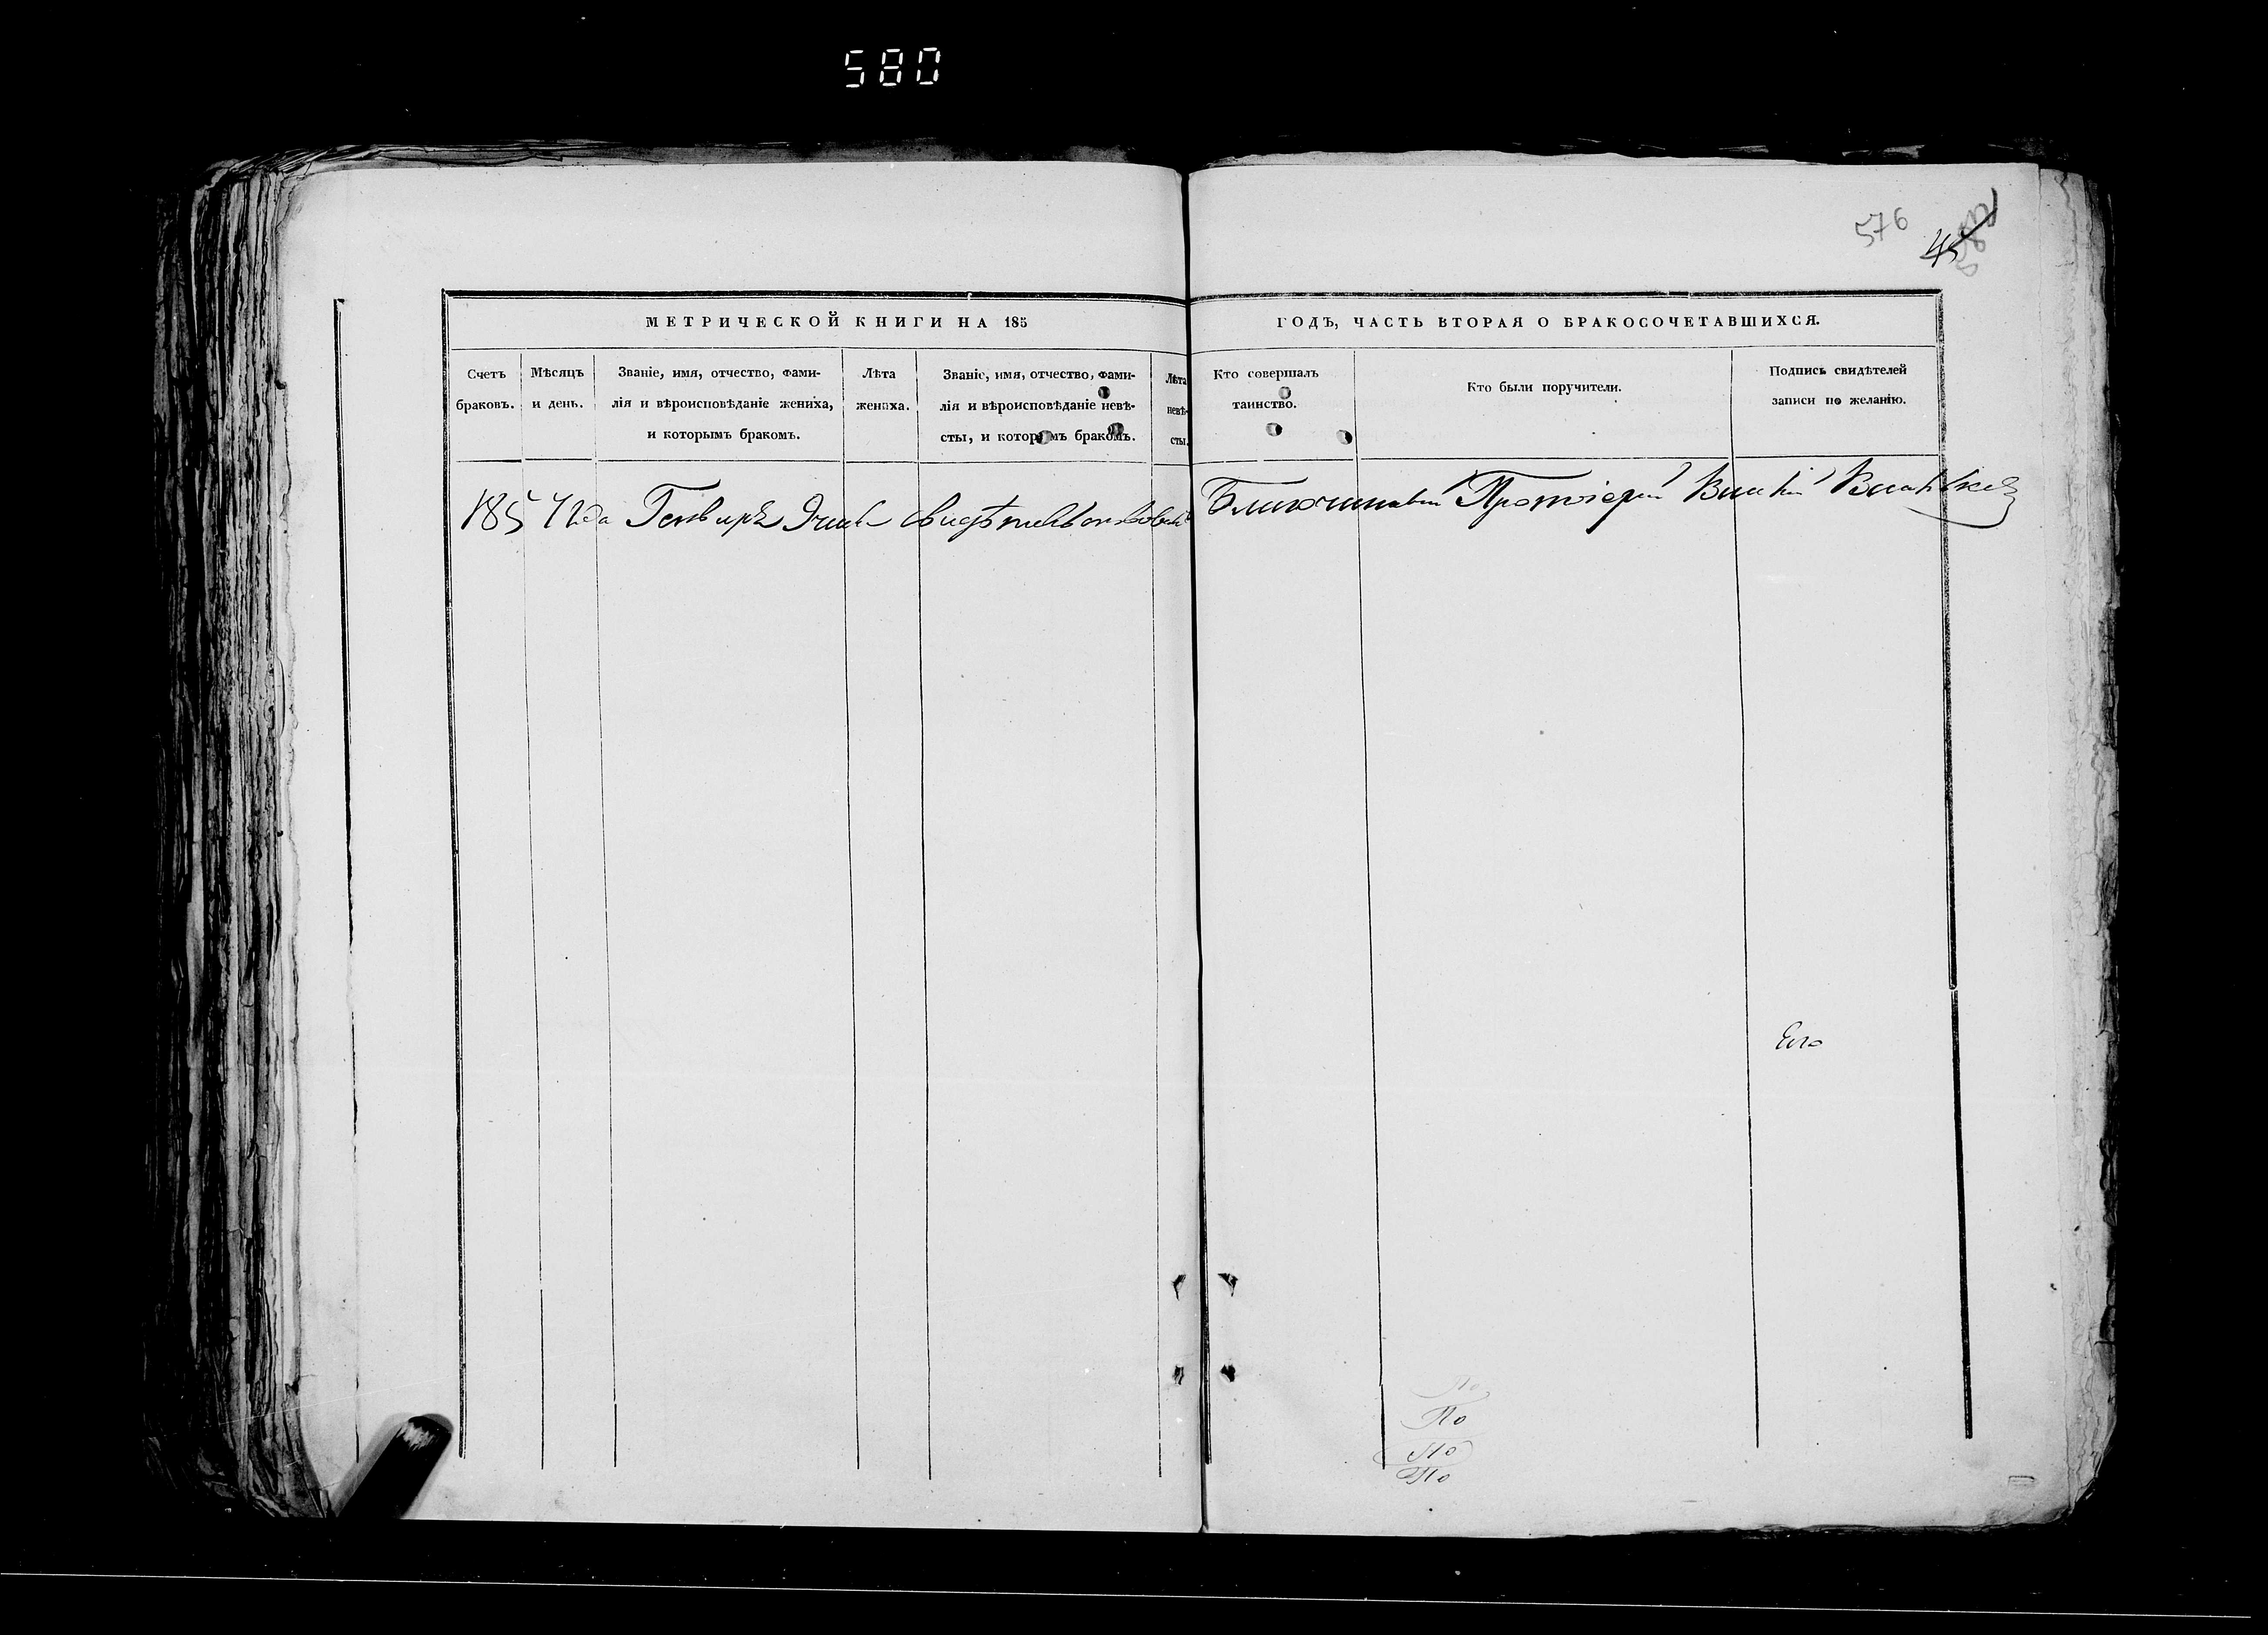 580
576
45
МЕТРИЧЕСКОЙ КНИГИ НА 185 ГОДЪ, ЧАСТЬ ВТОРАЯ О БРАКОСОЧЕТАВШИХСЯ.
Счетъ браковъ.
Мѣсяцъ и день.
Званіе, имя, отчество, фами-
лія и вѣроисповѣданіе жениха,
и которымъ бракомъ.
Лѣта
жениха.
Званіе, имя, отчество, фами-
лія и вѣроисповѣданіе невѣ-
сты, и которымъ бракомъ.
Лѣта
невѣ-
сты.
Кто совершалъ
таинство.
Кто были поручители.
Подпись свидѣтелей
записи по желанію.
1857 года Генваря 9 дня свидѣтельствовалъ Благочинный Протоіерей
Его
По
По
По
По